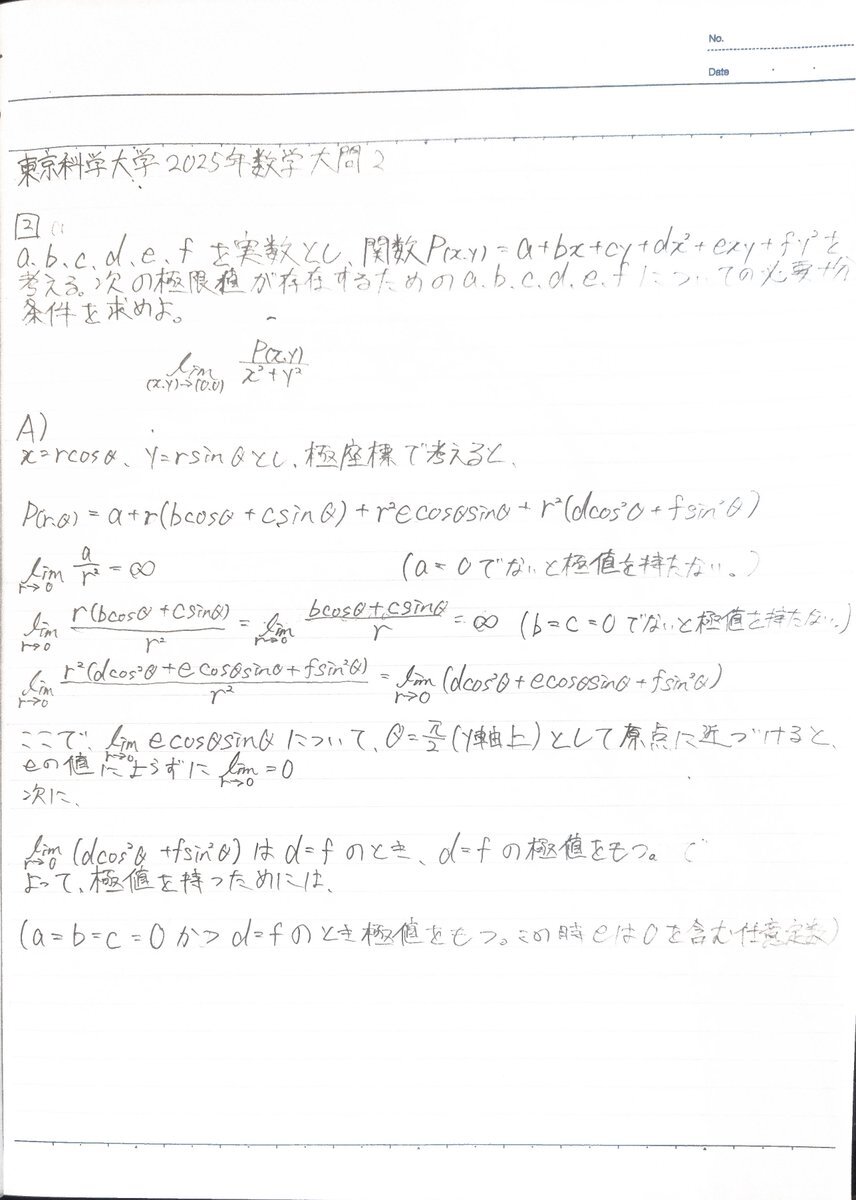 No.
Date
東京科学大学 2025年数学大問2
2
a.b.c.d.e.f を実数とし、関数P(x.y)=a+bx+cy+dx²+exy+fy²を
考える。次の極限値が存在するためのa.b.c.d.e.fについての必要十分
条件を求めよ。
lim (x.y)→(0.0) P(x.y)/(x²+y²)
A)
x=rcosθ、y=rsinθとし、極座標で考えると、
P(r.θ)=a+r(bcosθ+csinθ)+r²ecosθsinθ+r²(dcos²θ+fsin²θ)
lim r→0 a/r² = ∞ (a=0でないと極値を持たない。)
lim r→0 r(bcosθ+csinθ)/r² = lim r→0 (bcosθ+csinθ)/r = ∞ (b=c=0でないと極値を持たない。)
lim r→0 r²(dcos²θ+ecosθsinθ+fsin²θ)/r² = lim r→0 (dcos²θ+ecosθsinθ+fsin²θ)
ここで、lim r→0 ecosθsinθについて、θ=π/2(y軸上)として原点に近づけると、
eの値によらずに lim r→0 =0
次に、
lim r→0 (dcos²θ+fsin²θ)は d=fのとき、d=fの極値をもつ。
よって、極値を持つためには、
(a=b=c=0かつd=fのとき極値をもつ。この時eは0を含む任意定数)